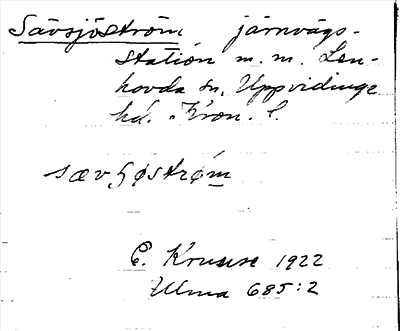 Sävsjöström järnvägs-
station m. m. Len-
hovda sn, Uppvidinge
hd. Kron. l.
sævʃøstrøm
E. Kruuse 1922
Ulma 685:2